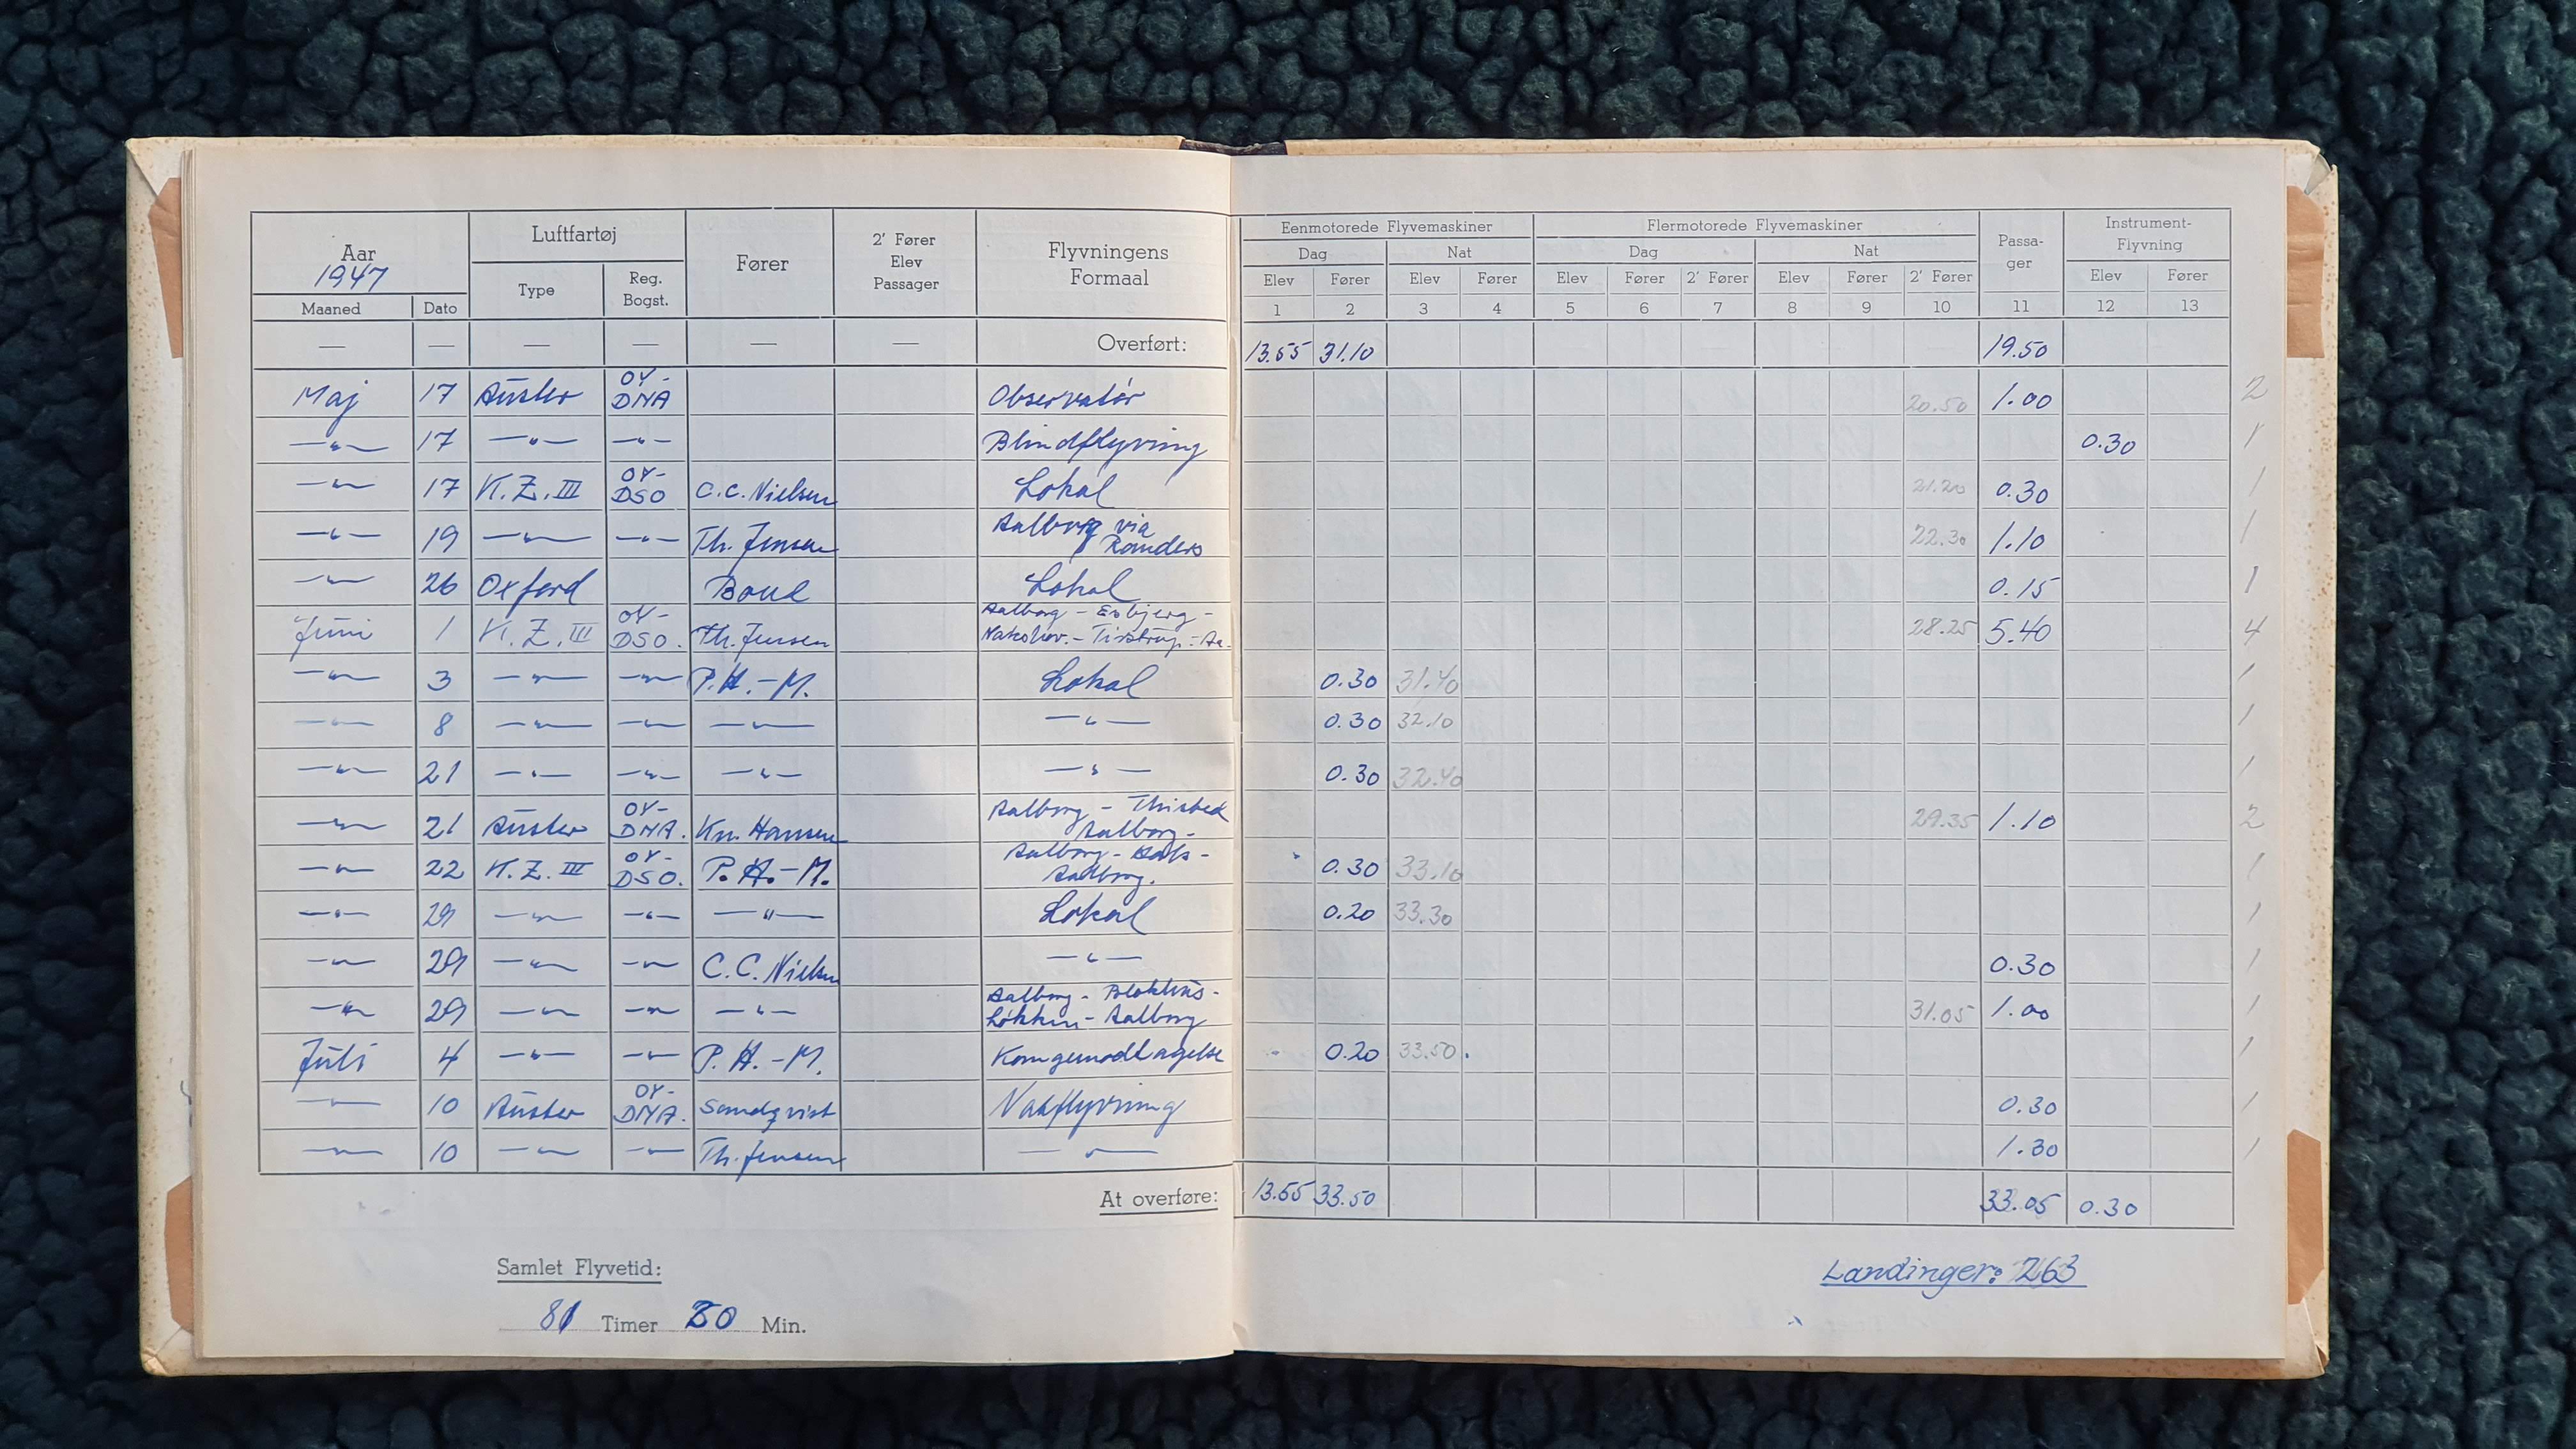 Aar
1947
Luftfartøj
Fører
2' Fører
Elev
Passager
Flyvningens
Formaal
Eenmotorede Flyvemaskiner
Flermotorede Flyvemaskiner
Passa-
ger
Instrument-
Flyvning
Type
Reg.
Bogst.
Dag
Nat
Dag
Nat
Maaned
Dato
Elev
Fører
Elev
Fører
Elev
Fører
2' Fører
Elev
Fører
2' Fører
Elev
Fører
1 2 3 4 5 6 7 8 9 10 11 12 13
— — — — — — Overført: 13.55 31.10 19.50
Maj 17 Auster OY-DNA Observatør 20.50 1.00 2
—"— 17 —"— —"— Blindflyvning 0.30 1
—"— 17 K.Z.III OY-DSO C.C. Nielsen Lokal 21.20 0.30 1
—"— 19 —"— —"— Th. Jensen Aalborg via Randers 22.30 1.10 1
—"— 26 Oxford Lokal 0.15 1
Juni 1 K.Z.III OY-DSO. Th. Jensen Aalborg - Esbjerg - Nakskov. - Tirstrup. - Aa. 28.25 5.40 4
—"— 3 —"— —"— P.H.-M. Lokal 0.30 31.40 1
—"— 8 —"— —"— —"— —"— 0.30 32.10 1
—"— 21 —"— —"— —"— —"— 0.30 32.40 1
—"— 21 Auster OY-DNA. Kn. Hansen Aalborg - Thisted Aalborg - 29.35 1.10 2
—"— 22 K.Z.III OY-DSO. P.H.-M. Aalborg - Hals - Aalborg. 0.30 33.10 1
—"— 29 —"— —"— —"— Lokal 0.20 33.30 1
—"— 29 —"— —"— C.C. Nielsen —"— 0.30 1
—"— 29 —"— —"— —"— Aalborg - Blokhus - Løkken - Aalborg 31.05 1.00 1
Juli 4 —"— —"— P.H.-M. Kongemodtagelse 0.20 33.50. 1
—"— 10 Auster OY-DNA. Sandqvist Natflyvning 0.30 1
—"— 10 —"— —"— Th. Jensen —"— 1.30 1
At overføre: 13.55 33.50 33.05 0.30
Samlet Flyvetid:
81 Timer Min.
Landinger: 263